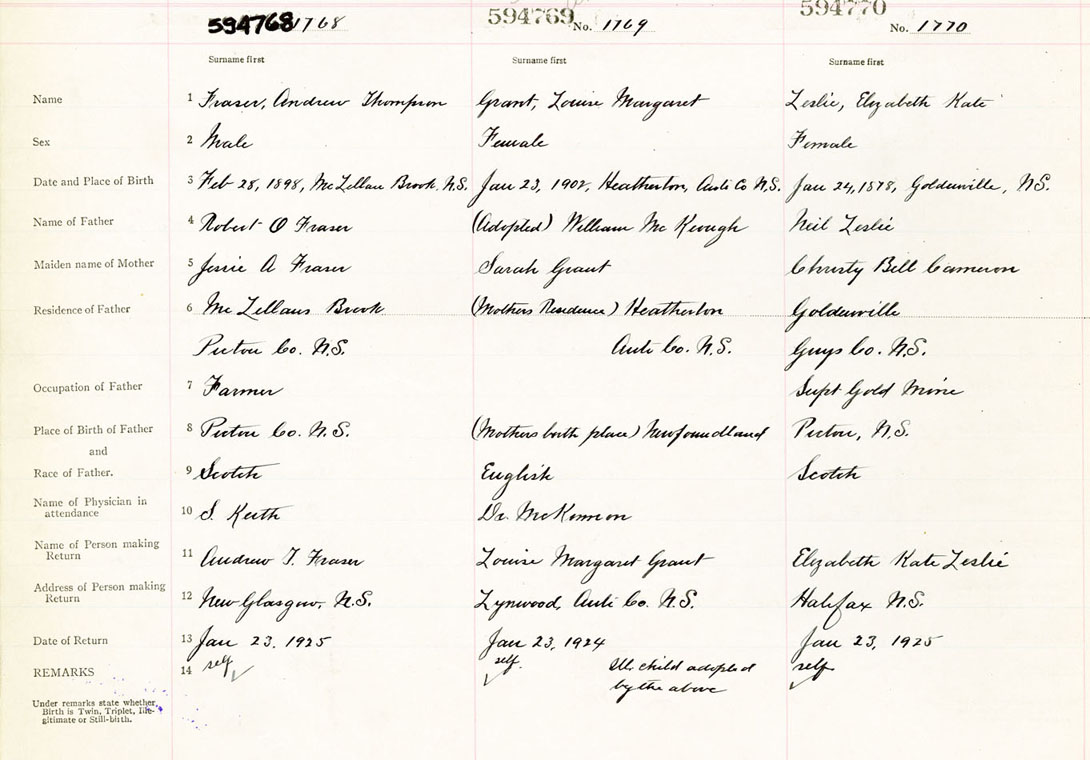 594768 1768 594769 No. 1769 594770 No. 1770
Surname first Surname first Surname first
Name 1 Fraser, Andrew Thompson Grant, Louise Margaret Leslie, Elizabeth Kate
Sex 2 Male Female Female
Date and Place of Birth 3 Feb 28, 1898, McLellan Brook, N.S. Jan 23, 1902, Heatherton, Anti Co N.S. Jan 24, 1878, Goldenville, N.S.
Name of Father 4 Robert O Fraser (Adopted) William McKeough Neil Leslie
Maiden name of Mother 5 Jessie A Fraser Sarah Grant Christy Bell Cameron
Residence of Father 6 McLellans Brook (Mothers Residence) Heatherton Goldenville
Pictou Co. N.S. Anti Co. N.S. Guys Co. N.S.
Occupation of Father 7 Farmer Supt Gold Mine
Place of Birth of Father 8 Pictou Co. N.S. (Mothers birth place) Newfoundland Pictou, N.S.
and
Race of Father. 9 Scotch English Scotch
Name of Physician in
attendance 10 S. Keith Dr. McKinnon
Name of Person making
Return 11 Andrew T. Fraser Louise Margaret Grant Elizabeth Kate Leslie
Address of Person making
Return 12 New Glasgow, N.S. Lynwood, Anti Co. N.S. Halifax N.S.
Date of Return 13 Jan 23, 1925 Jan 23, 1924 Jan 23, 1925
REMARKS 14 self self. Ill. child adopted self
by the above
Under remarks state whether
Birth is Twin, Triplet, Ille-
gitimate or Still-birth.